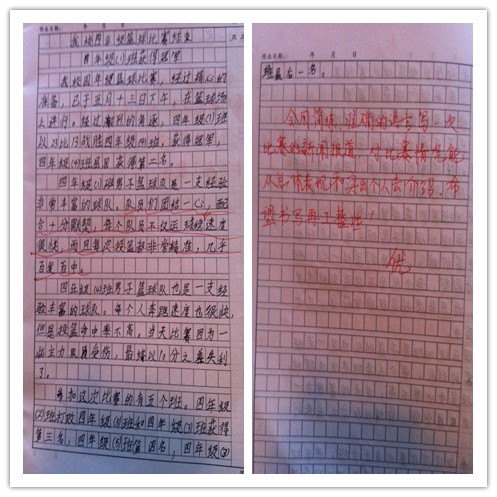 作业日期： 年 月 日
我校四年级篮球比赛结束
四年级(1)班获得冠军
我校四年级篮球比赛，经过精心的
准备，已于五月十三日下午，在篮球场
上进行。经过 的角逐，四年级(1)班
以23比13战胜四年级(4)班，获得冠军，
四年级(4)班只获得第二名。
四年级(1)班男子篮球队是一支经验
非常丰富的球队，队员们团结一心，配
合十分默契，每个队员不仅运球速度
很快，而且每次投篮都非常精准，几乎
百发百中。
四年级(4)班男子篮球队也是一支经
验丰富的球队。每个人奔跑速度也很快，
但是投篮命中率不高，当天比赛因为一
位主力队员受伤，最终以10分之差失利
了。
参加这次比赛的有五个班。四年级
(2)班打败四年级(3)班和四年级(5)班获得
第三名，四年级(5)班第四名，四年级(3)
作业日期： 年 月 日
班最后一名。
会用简练、准确的语言写一次
比赛的新闻报道，对比赛情况能
从总体表现和 个人去介绍，希
望书写再工整些！
优